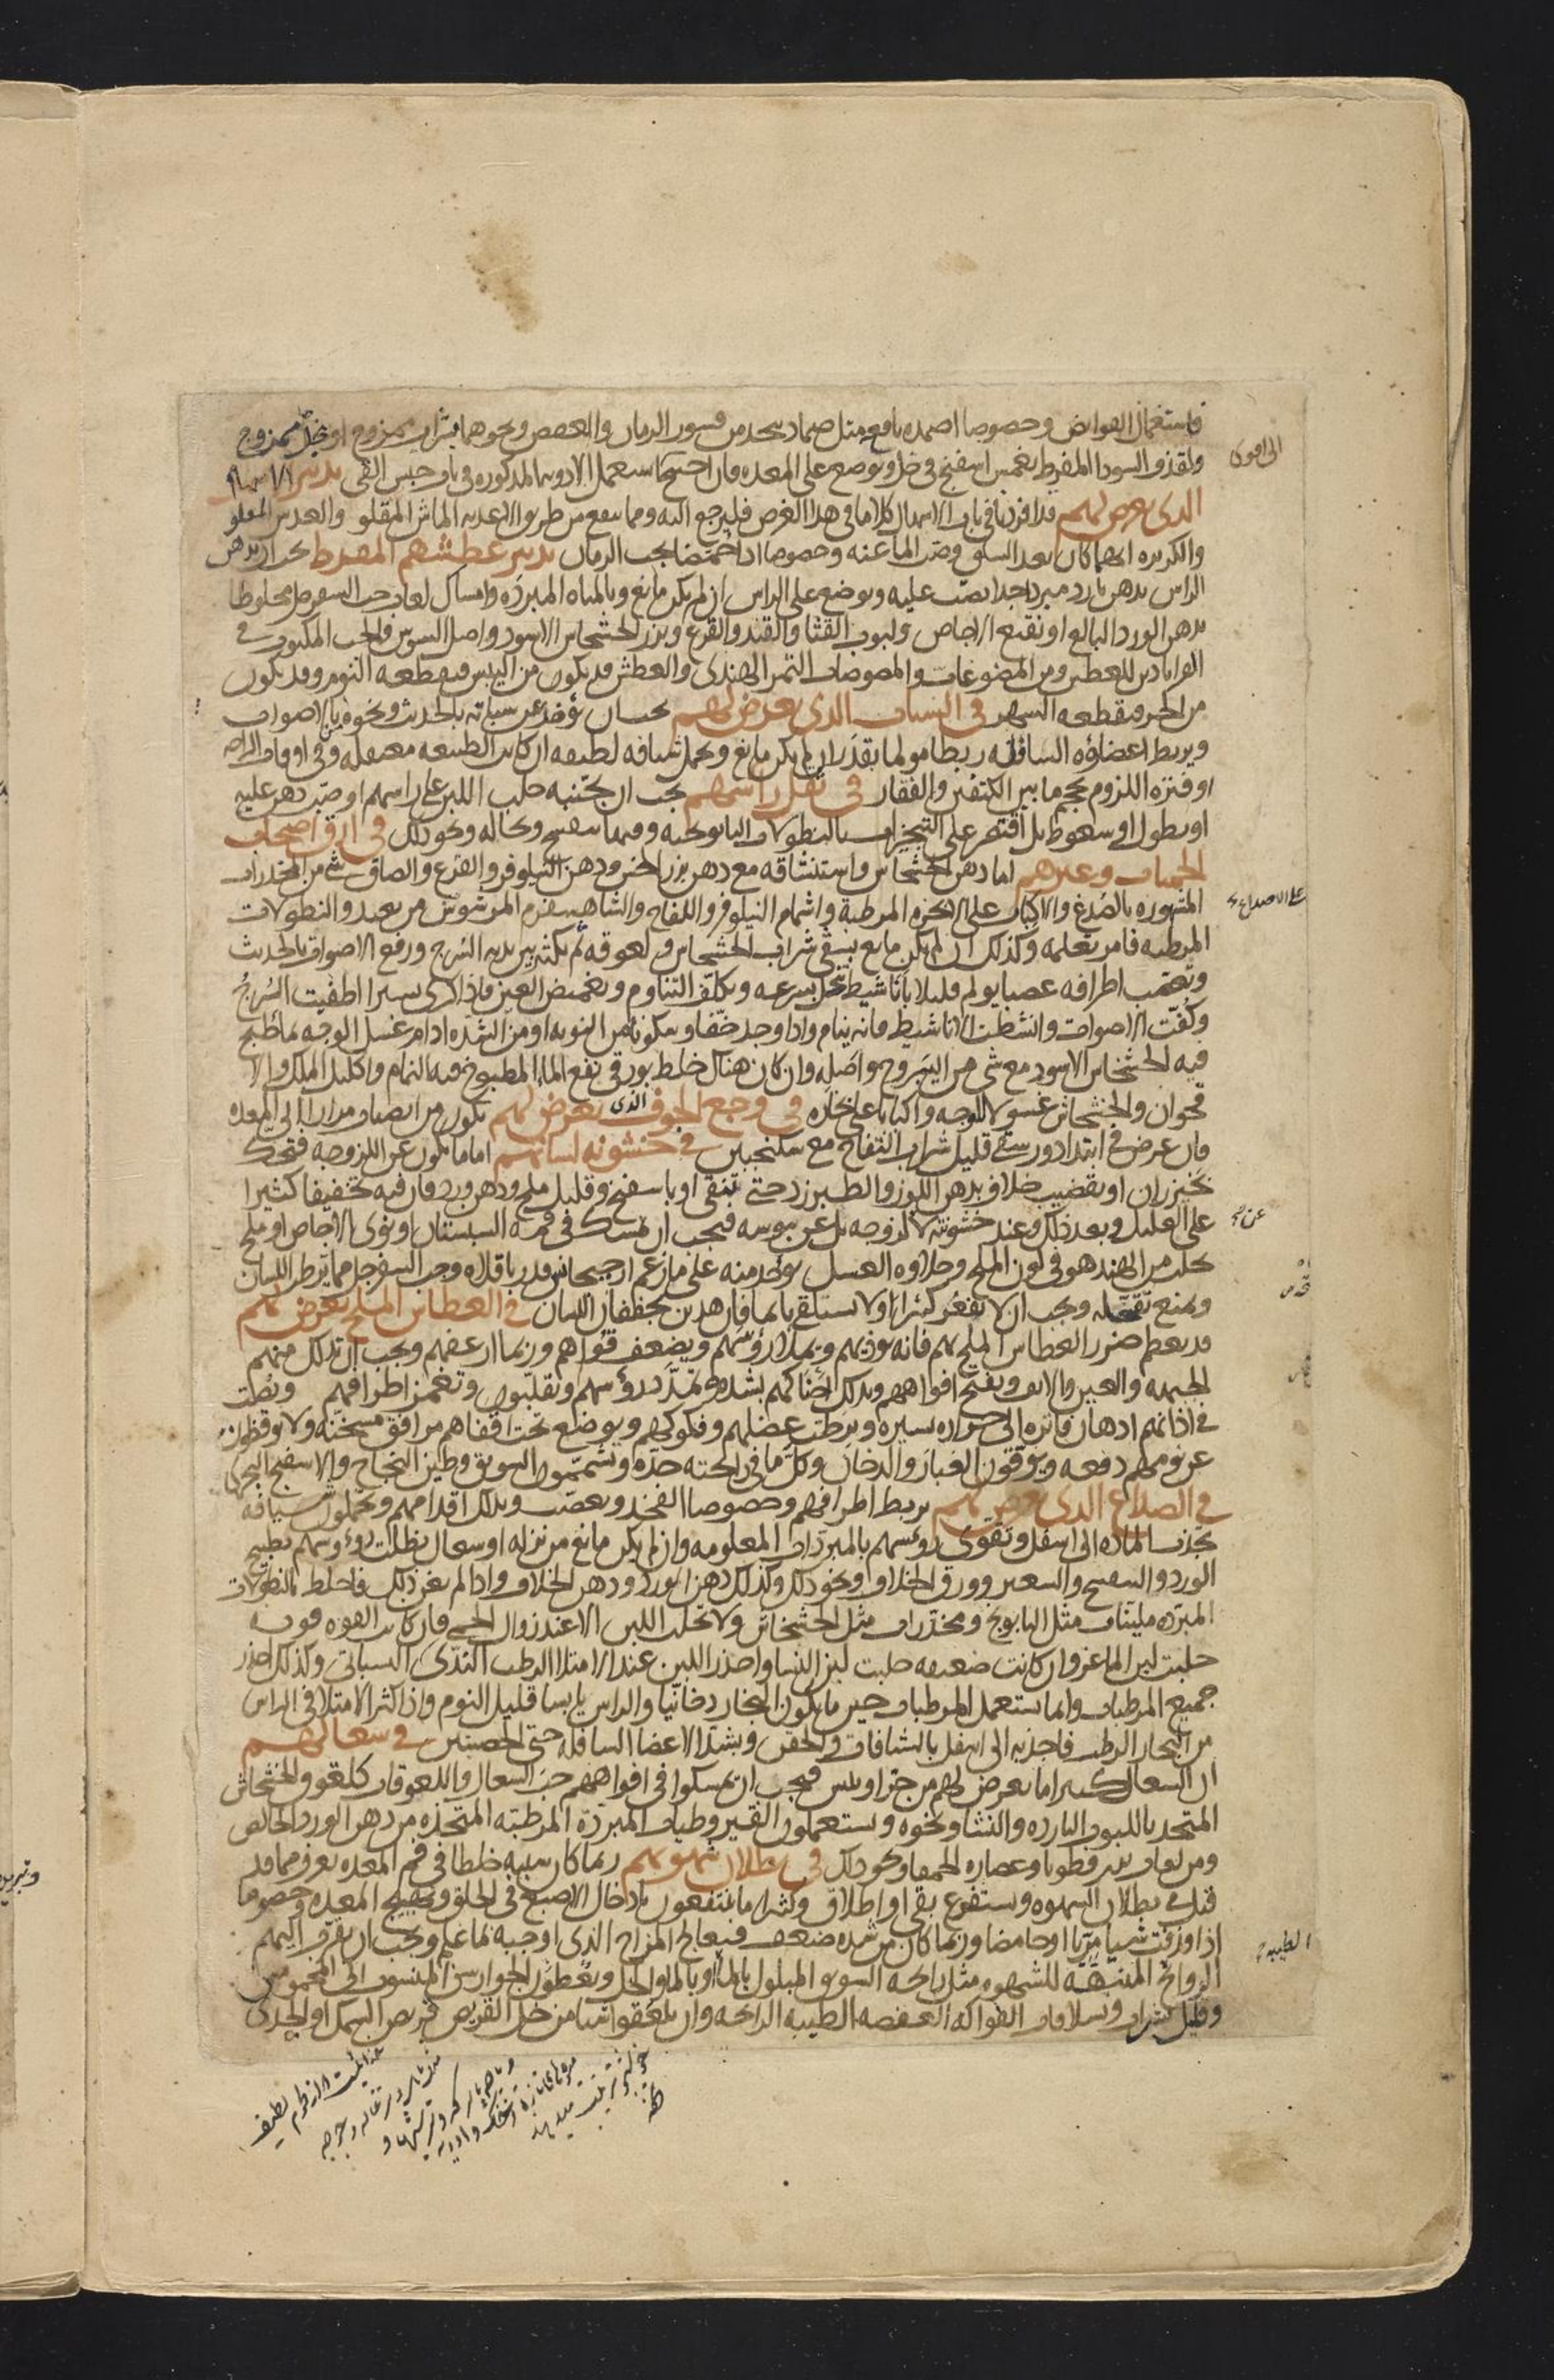 فاستعمال القوابض وخصوصا اضمدة نافعة مثل ضماد يتخذ من قشور الرمان والعفص ونحوهما بشراب ممزوج او خل ممزوج
ولقذف السودا المفرط يغمس اسفنج في خل ويوضع على المعده فان احتيج استعمل الادوية المذكوره في باب حبس القي تدبير الاسهال
الذي يعرض لهم قد افردنا في باب الاسهال كلاما في هذا الغرض فليرجع اليه ومما ينفع من طريق الاغذية الماش المقلو والعدس المقلو
والكزبره ايهما كان بعد السلق وصب الماء عنه وخصوصا اذا حمضا بحب الرمان تدبير عطشهم المفرط يجب ان يدهن
الراس بدهن بارد مبرد جدا يصب عليه ويوضع على الراس ان لم يكن مانع وبالمياه المبردة وامساك لعاب حب السفرجل مخلوطا
بدهن الورد البالغ او نقيع الاجاص ولبوب القثا والقثد والقرع وبزر الخشخاش الاسود واصل السوس والحب المكتوب في
القراباذين للعطش ومن المضوغات والمصوصات التمر الهندي والعطش قد يكون من اليبس فيقطعه النوم وقد يكون
من الحر فيقطعه السهر في السبات الذي يعرض لهم يجب ان يؤخذ عن سباته بالحديث ونحوه من الاصوات
ويربط اعضاؤه السافلة ربطا مولما بقدر ان لم يكن مانع ويحمل شيافه لطيفه ان كانت الطبيعه معتقله وفي اوقات الراحه
او فترة اللزوم يحجم ما بين الكتفين والفقار في ثقل راسهم يجب ان يجتنبه حلب اللبن على راسهم او صب دهن عليه
او نطول او سعوط بل اقتصر على التبخيرات بالنطولات البابونجيه وفيها بنفسج ونخاله ونحو ذلك في ارق اصحاب
الحميات وغيرهم اما دهن الخشخاش واستنشاقه مع دهن بزر الخس ودهن النيلوفر والقرع والصاق شي من المخدرات
المشهوره بالصدغ والاكباب على الابخرة المرطبة واشمام النيلوفر واللفاح والشاهسفرم المرشوش من بعيد والنطولات
المرطبه فامر تعلمه وكذلك ان لم يكن مانع يسقى شراب الخشخاش ولعوقه ثم يكثر بين يديه السرج ورفع الاصوات بالحديث
وتعصب اطرافه عصبا يولم قليلا باناشيط تنحل بسرعه ويكلف التناوم وتغميض العين فاذا كرى يسيرا اطفيت السرج
وكفت الاصوات وانشطت الاناشيط فانه ينام واذا وجد خفا وسكونا من النوبه او من الشده ادام غسل الوجه بماء طبخ
فيه الخشخاش الاسود مع شي من اليبروح مواصله وان كان هناك خلط بورقي نفع الماء المطبوخ فيه النمام واكليل الملك والا
قحوان والخشخاش غسولا للوجه واكبابا على بخاره في وجع الجوف الذي يعرض لهم يكون من انصباب مرار الى المعده
فان عرض في ابتدا دور سقي قليل شراب التفاح مع سكنجبين في خشونة لسانهم اما ما يكون عن اللزوجه فتحك
بخيزران او بقضيب خلاف بدهن اللوز والطبرزد حتى تنقى او باسفنج وقليل ملح ودهن ورد فان فيه تخفيفا كثيرا
على العليل وبعد ذلك وعند خشونته لا لزوجه بل عن يبوسه فيجب ان يمسك في فمه السبستان او نوى الاجاص او ملح
يجلب من الهند هو في لون الملح وحلاوه العسل يوخذ منه على ما زعم ارجيجانس قدر باقلاه وحب السفرجل مما يرطب اللسان
ويمنع تقحله ويجب ان لا يفغر كثيرا ولا يستلقي نائما فان هذين يجففان اللسان في العطاس الملح يعرض لهم
قد يعظم ضرر العطاس الملح بهم فانه يوذيهم ويملا رؤسهم ويضعف قواهم وربما ارعفهم ويجب ان تدلك منهم
الجبهة والعين والانف ويفتح افواههم وتدلك احناكهم بشده وتمدد رؤسهم وتقلبهم وتغمز اطرافهم وتصب
في اذانهم ادهان فاتره الى حراره يسيره وترطب عضلهم وفكوكهم ويوضع تحت اقفاهم مرافق مسخنه ولا يوقظون
عن نومهم دفعه ويوقون الغبار والدخان وكل ما في رايحته حده ويشممون السويق وطين النجاح والاسفنج البحري
في الصداع الذي يعرض لهم يربط اطرافهم وخصوصا الفخذ ويعصب ويدلك اقدامهم ويحملون شيافه
تجذب المادة الى اسفل وتقوى رؤسهم بالمبردات المعلومه وان لم يكن مانع من نزله او سعال نطلت رؤوسهم بطبيخ
الورد والبنفسج والشعير وورق الخلاف ونحو ذلك وكذلك دهن الورد ودهن الخلاف واذا لم يغن ذلك فاخلط بالنطولات
المبرده ملينات مثل البابونج ومخدرات مثل الخشخاش ولا تحلب اللبن الا عند زوال الحمى فان كانت القوه قويه
حلبت لبن الماعز وان كانت ضعيفه حلبت لبن النسا واحذر اللبن عند الامتلا الرطب الندى السباتي وكذلك احذر
جميع المرطبات وانما تستعمل المرطبات حين ما يكون البخار دخانيا والراس يابسا قليل النوم واذا كثر الامتلا في الراس
من البخار الرطب فاجذبه الى اسفل بالشافات والحقن وبشد الاعضا السافله حتى الخصيتين في سعالهم
ان السعال كثيرا ما يعرض لهم من حر او يبس فيجب ان يمسكوا في افواههم حب السعال واللعوقات كلعوق الخشخاش
المتخذ باللبوب البارده والنشا ونحوه ويستعملون القيروطيات المبردة المرطبته المتخذه من دهن الورد الخالص
ومن لعاب بزر قطونا وعصاره الحمقا ونحو ذلك في بطلان شهوتهم ربما كان سببه خلطا في فم المعده يعرف مما قد
قيل في بطلان الشهوه ويستفرغ بقي او اطلاق وكثيرا ما ينتفعون بادخال الاصبع في الحلق وتهييج المعده وخصوصا
اذا قذفت شيا مريا او حامضا وربما كان من شده ضعف فيعالج المزاج الذي اوجبه بما علم ويجب ان يقرب اليهم
الروائح المنبهة للشهوه مثل رايحه السويق المبلول بالماء او بالماء والخل ويعطون الجوارشن المنسوب الى المحمومين
وقليل شراب وسلافات الفواكه العفصه الطيبه الرايحه وان يلعقوا شيا من خل القريص قريص السمك او الجدى